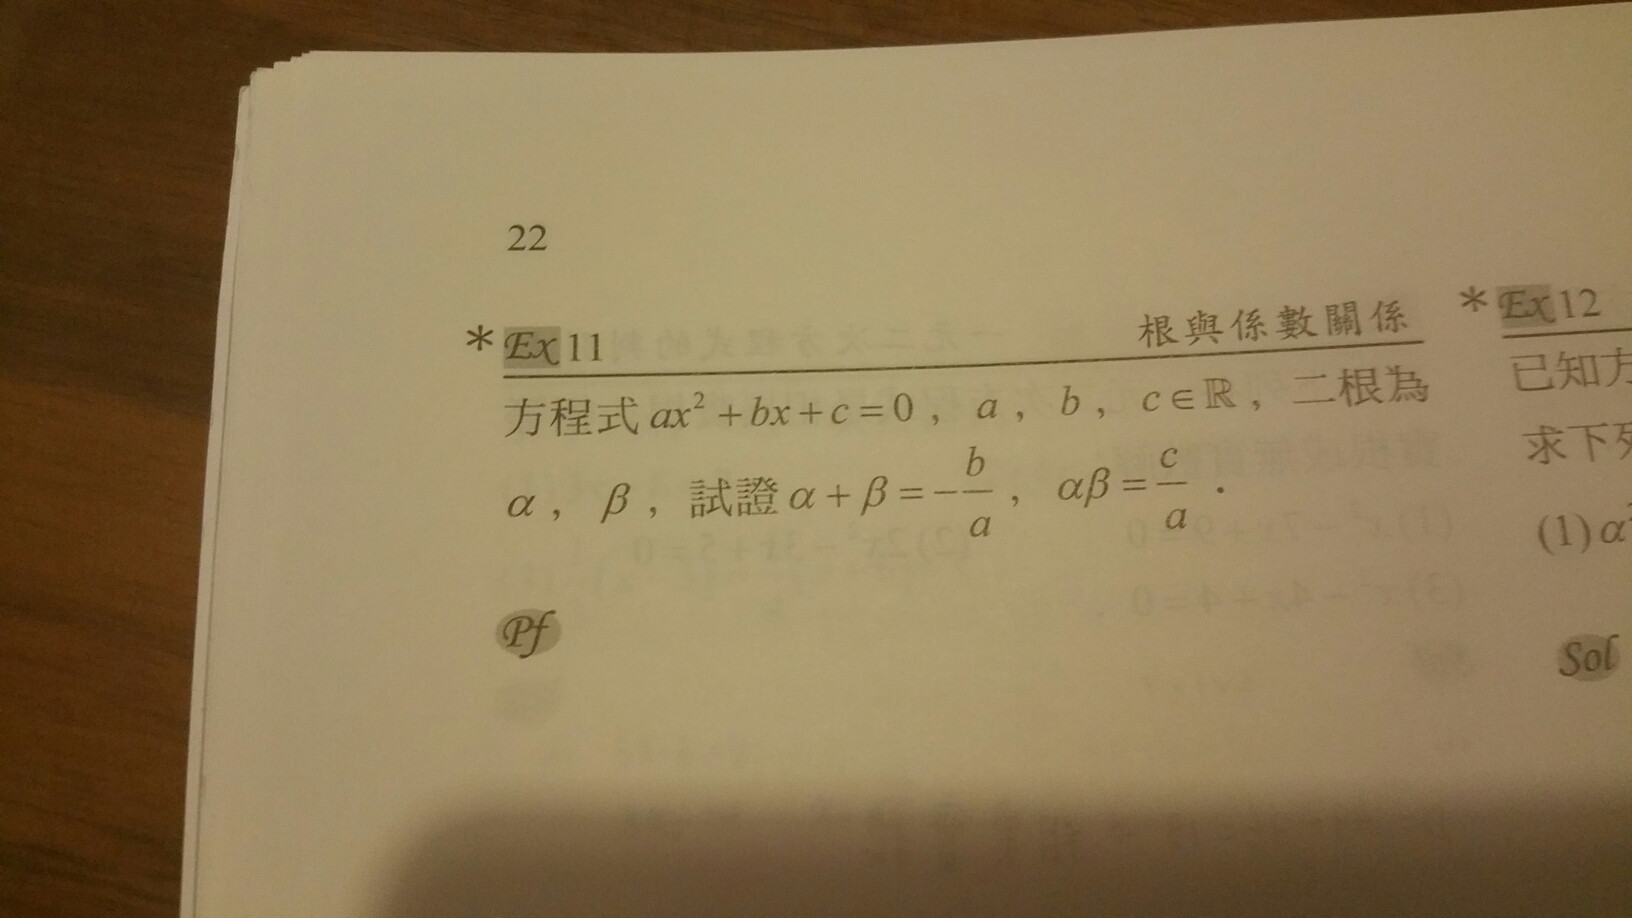 22
*Ex11 根與係數關係
方程式 ax² + bx + c = 0 , a , b , c ∈ ℝ , 二根為
α , β , 試證 α + β = -b/a , αβ = c/a .
Pf
*Ex12
已知方
求下列
(1) α²
Sol